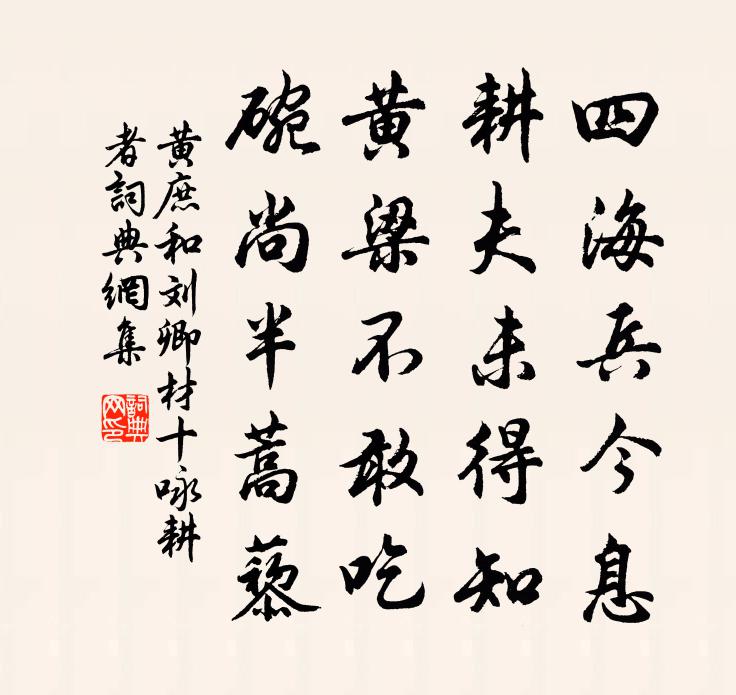 四海兵今息
耕夫未得知
黄梁不敢吃
碗尚半蒿藜
黄庶和刘卿材十咏耕
者詞典網集
詞典
网印